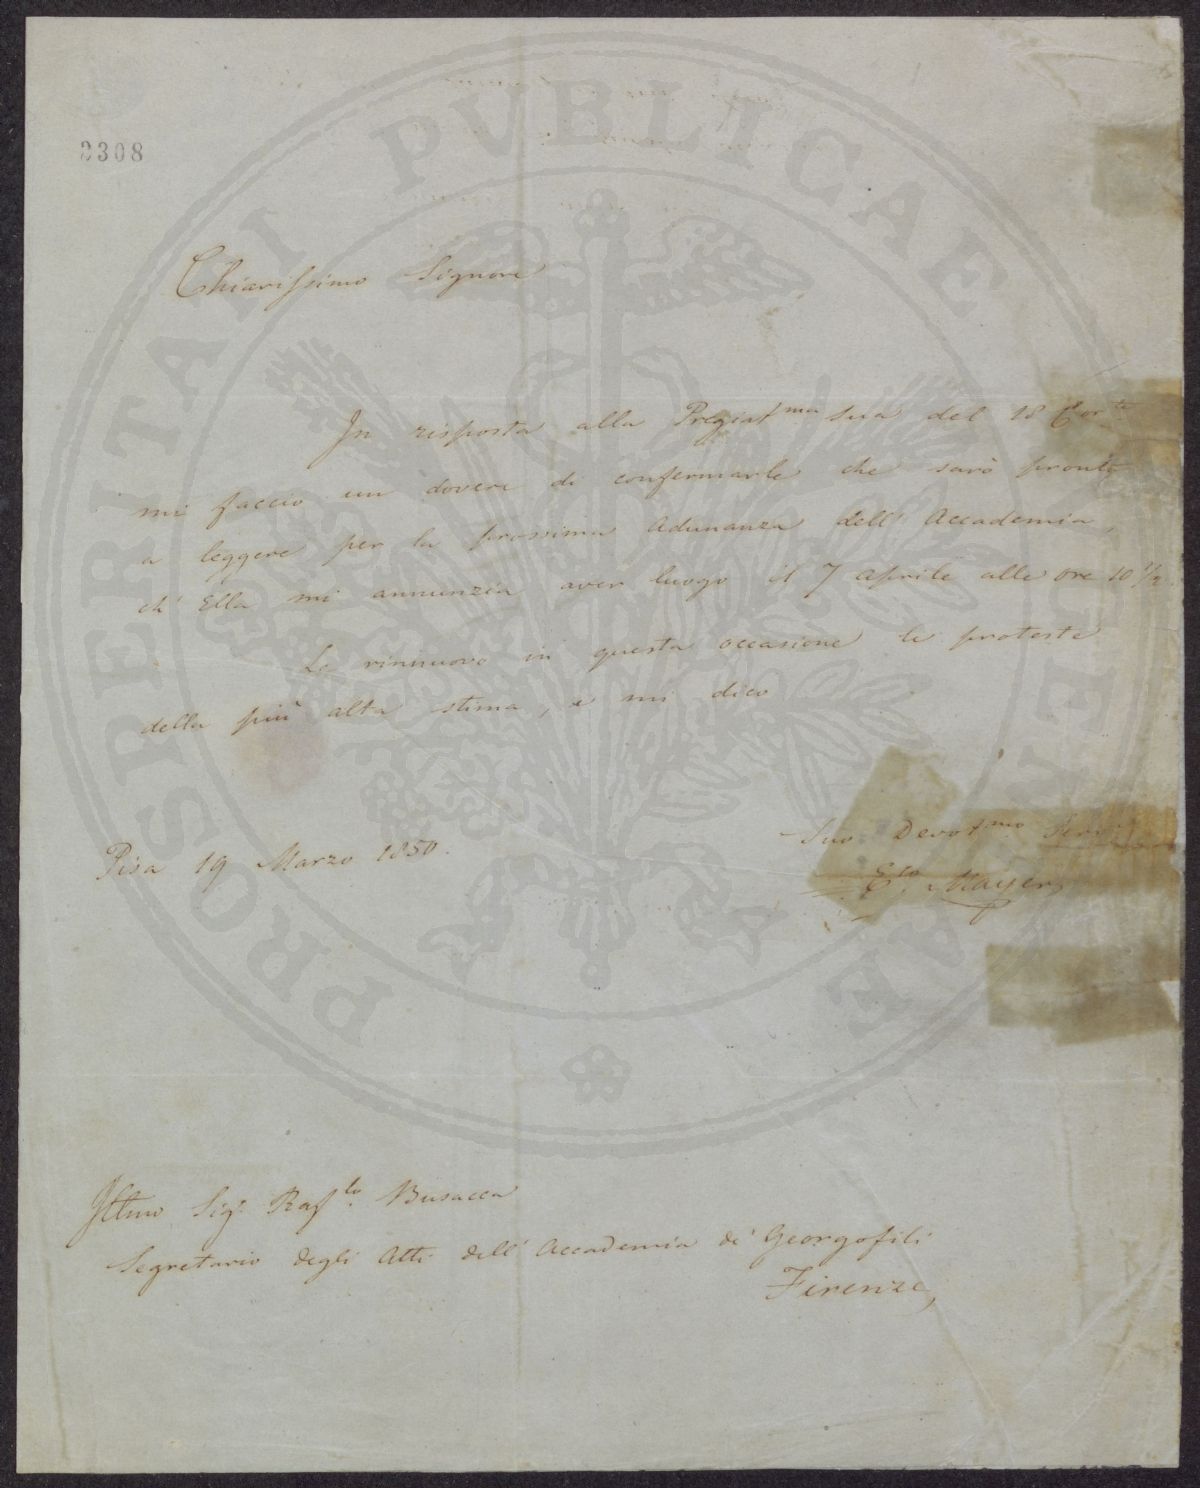 PROSPERITATI PUBLICAE AUGENDAE
2308
Chiarissimo Signore
In risposta alla Pregiat.ma sua del 18 Cor.te
mi faccio un dovere di confermarle che sarò pronto
a leggere per la prossima Adunanza dell' Accademia,
ch' Ella mi annunzia aver luogo il 7 Aprile alle ore 10 1/2.
Le rinnuovo in questa occasione le proteste
della più alta stima, e mi dico
Suo Devot.mo
Pisa 19 Marzo 1850.
E.co Mayer
Illmo Sig.r Raf.lo Busacca
Segretario degli Atti dell' Accademia de' Georgofili
Firenze